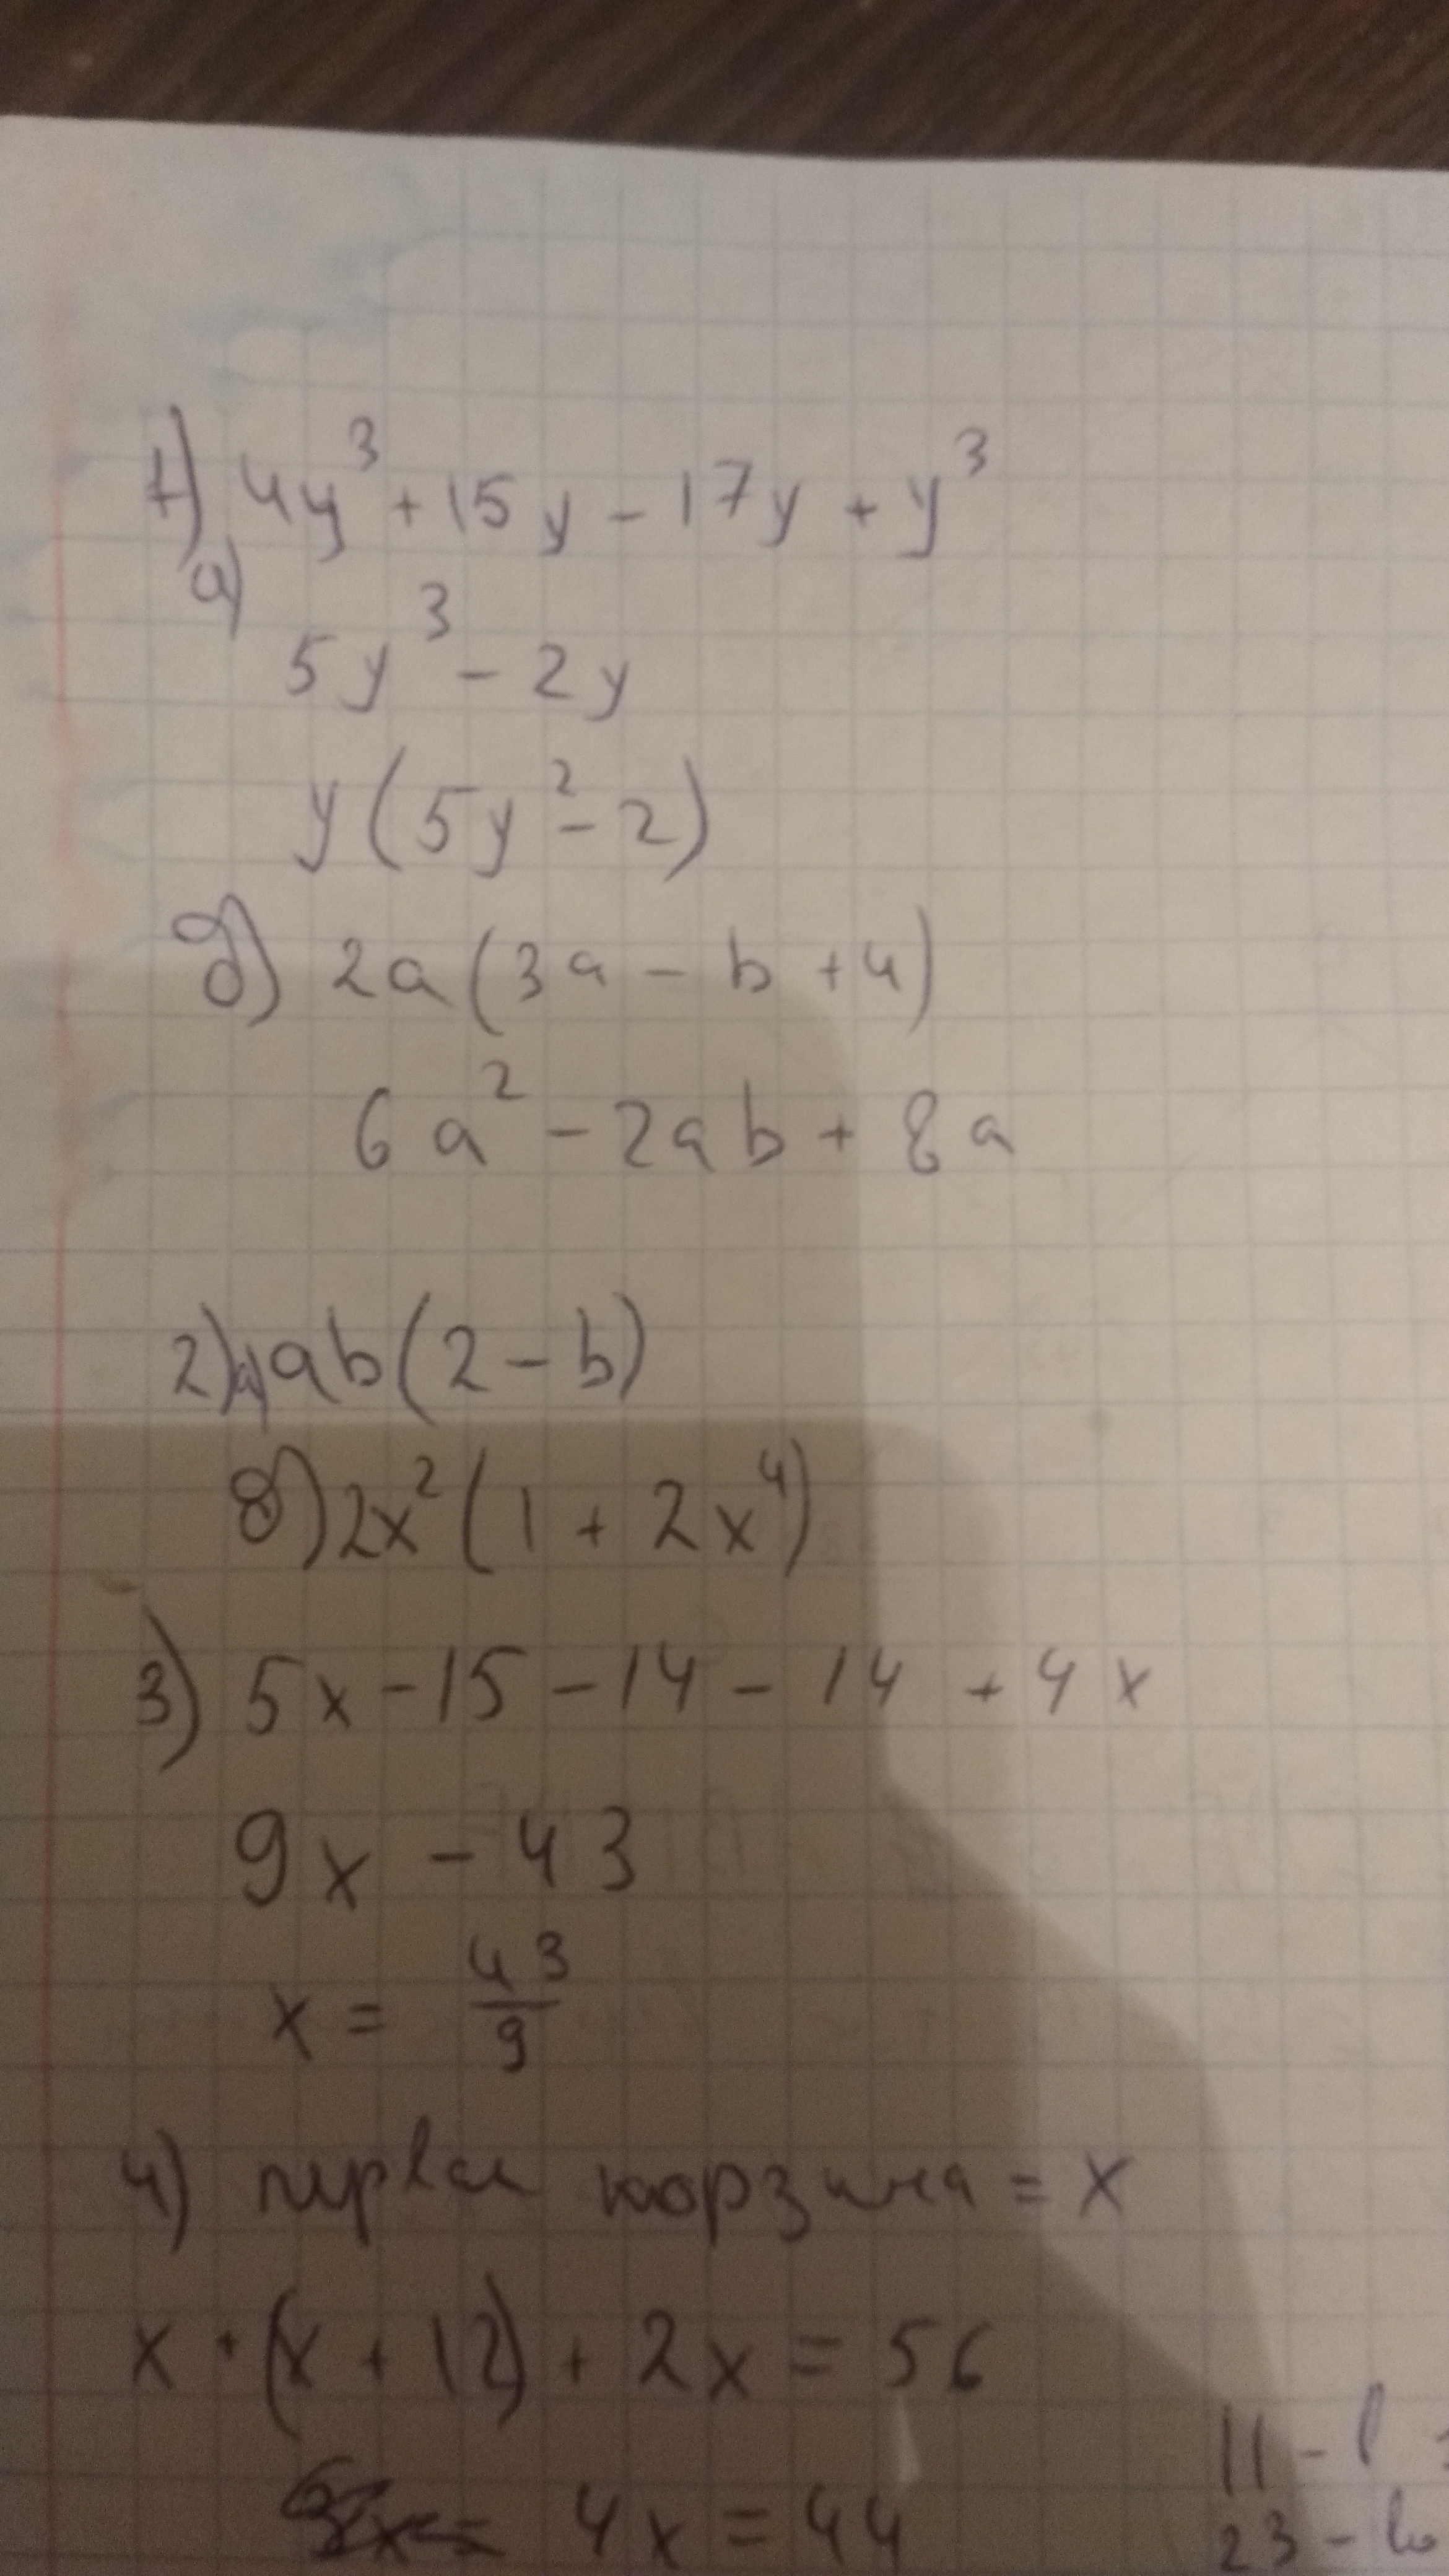 1) 4y³ + 15y - 17y + y³
а)
5y³ - 2y
y(5y² - 2)
б) 2a(3a - b + 4)
6a² - 2ab + 8a
2) а) ab(2 - b)
б) 2x²(1 + 2x⁴)
3) 5x - 15 - 14 - 14 + 4x
9x - 43
x = 43/9
4) корзина = x
x + (x + 12) + 2x = 56
4x = 44
11 -
23 -